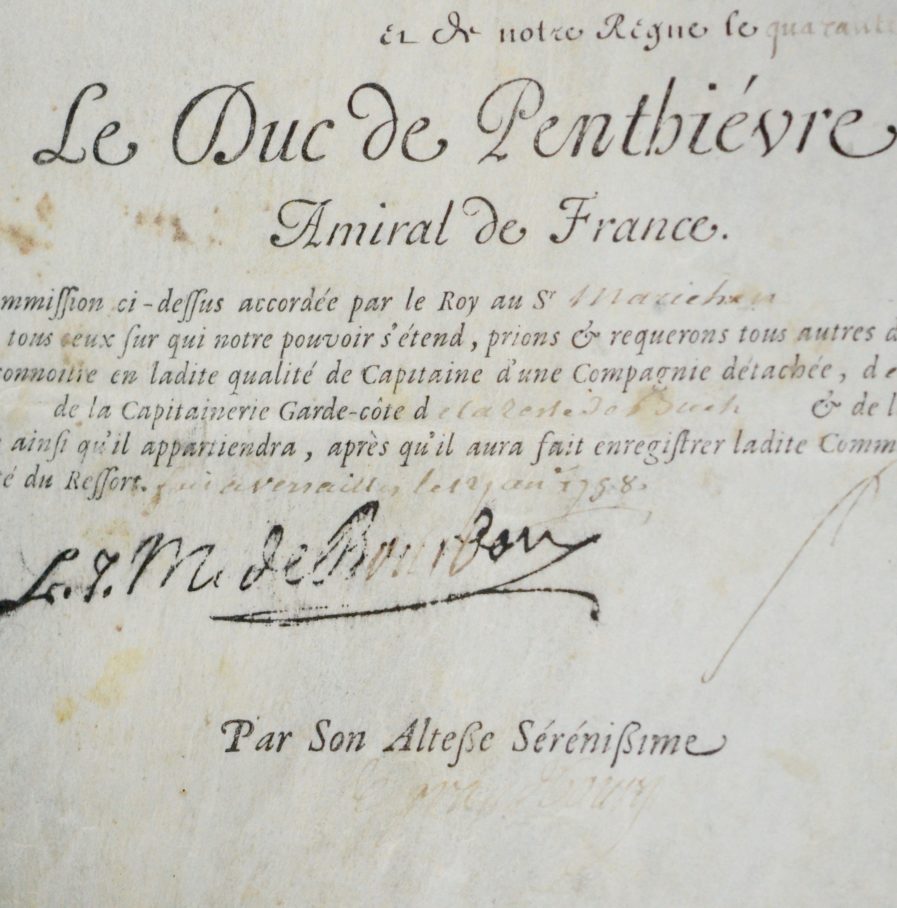 et de notre Régne le quarante
Le Duc de Penthiévre
Amiral de France.
mmiſſion ci-deſſus accordée par le Roy au Sr
tous ceux ſur qui notre pouvoir s'étend, prions & requerons tous autres d
connoître en ladite qualité de Capitaine d'une Compagnie détachée, de
de la Capitainerie Garde-côte d & de l
ainſi qu'il appartiendra, après qu'il aura fait enregiſtrer ladite Comm
té du Reſſort. a Versailles le 1758.
L. J. M. de Bourbon
Par Son Alteße Sérénißime